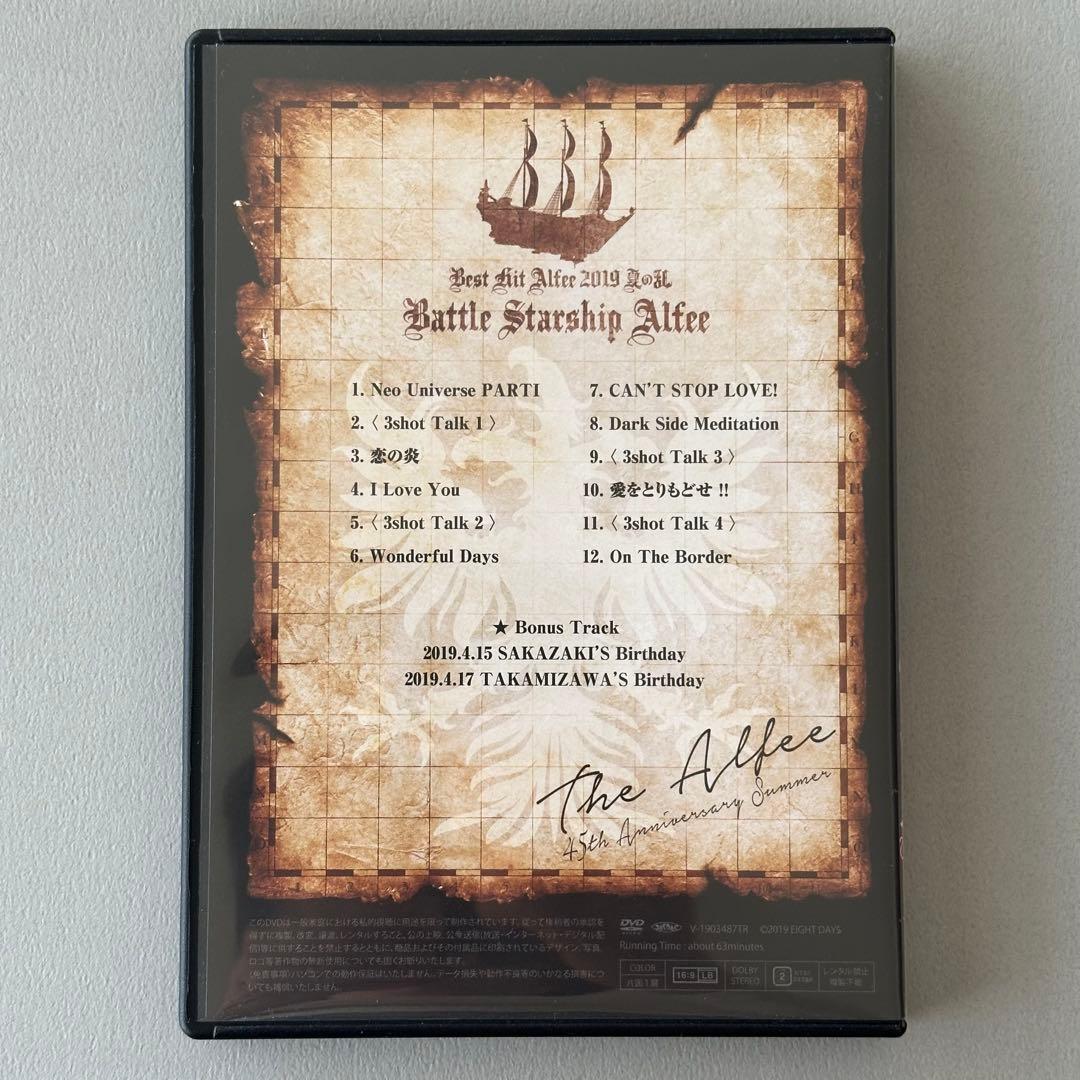 Best Hit Alfee 2019 夏の乱
Battle Starship Alfee
1. Neo Universe PARTI
2.〈 3shot Talk 1 〉
3. 恋の炎
4. I Love You
5.〈 3shot Talk 2 〉
6. Wonderful Days
7. CAN'T STOP LOVE!
8. Dark Side Meditation
9.〈 3shot Talk 3 〉
10. 愛をとりもどせ !!
11.〈 3shot Talk 4 〉
12. On The Border
★ Bonus Track
2019.4.15 SAKAZAKI'S Birthday
2019.4.17 TAKAMIZAWA'S Birthday
The Alfee
45th Anniversary Summer
このDVDは一般家庭における私的視聴に用途を限って制作されています。従って権利者の承認を
得ずに複製、改変、譲渡、レンタルすること、公の上映、公衆送信(放送・インターネット・デジタル配
信)等に供することを禁止するとともに、商品およびその付属品に印刷されているデザイン、写真、
ロゴ等著作物の無断使用についても固くお断りいたします。
(免責事項)パソコンでの動作保証はいたしません。データ損失や動作不良等のいかなる損害につ
いても補償いたしません。
DVD
V-1903487TR ©2019 EIGHT DAYS
Running Time : about 63minutes
COLOR
片面1層
16:9 LB
DOLBY
STEREO
2
レンタル禁止
複製不能